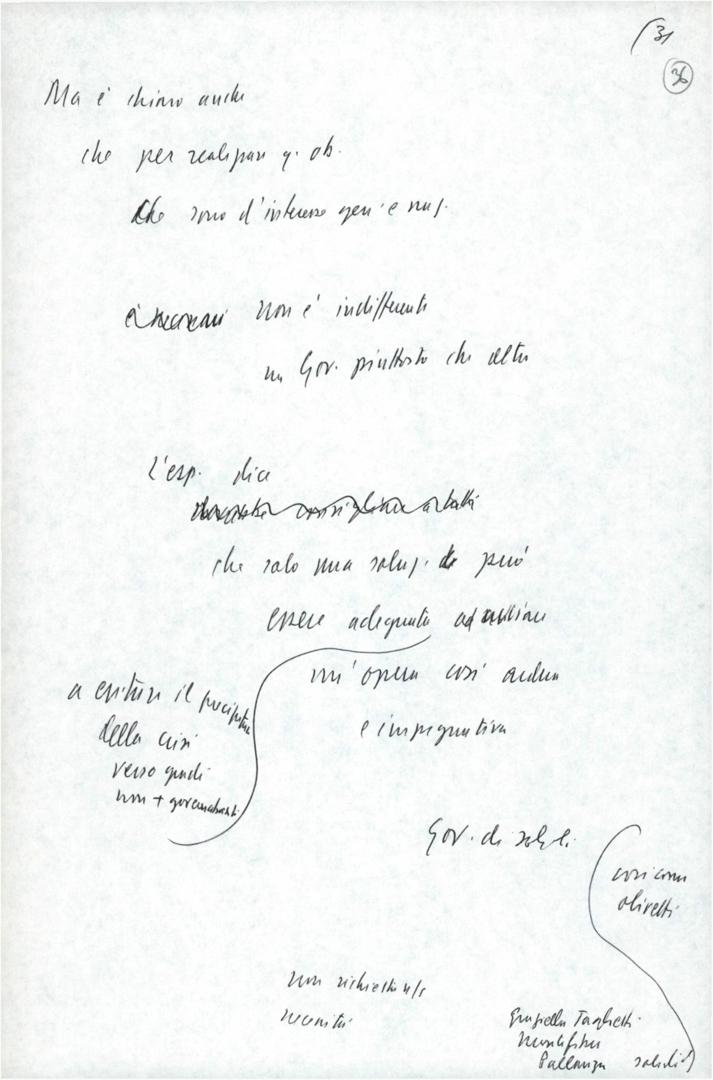 31
36
Ma è chiaro anche
che per realizzare q. ob.
che sono d'interesse gen. e naz.
non è indifferente
un Gov. piuttosto che altro
L'esp. dice
che solo una soluz. può
essere adeguata ad
un'opera così ardua
e impegnativa
a evitare il precipitare
della crisi
verso gradi
non + governabili
Gov. di
così come
olivetti
non richiesta
Graziella
Pallanza